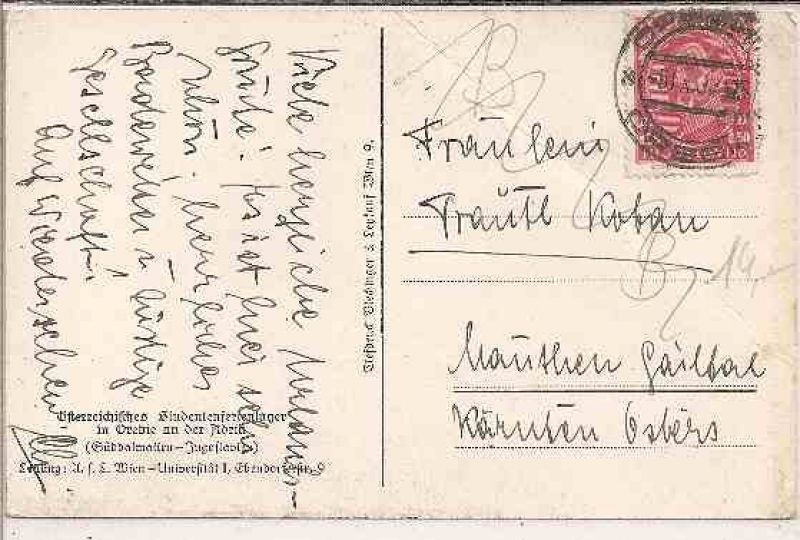 Viele herzliche Urlaubs-
grüße! Es ist hier sehr
schön, herrliches
Badewetter u. lustige
Gesellschaft.
Auf Wiedersehen
Österreichisches Studentenferienlager
in Orebic an der Adria
(Süddalmatien-Jugoslavien)
Leitung: A. s. C. Wien-Universität I, Ebendorferstr. 9
Tiefdruck Blechinger & Leykauf Wien 9.
Fräulein
Trautl Kotan
Mauthen Gailtal
Kärnten Österr
B
B 14.-